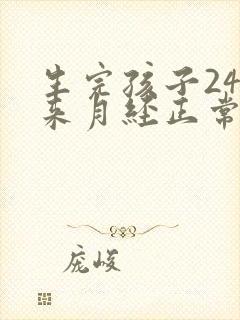 生完孩子24
来月经正常
庞峻